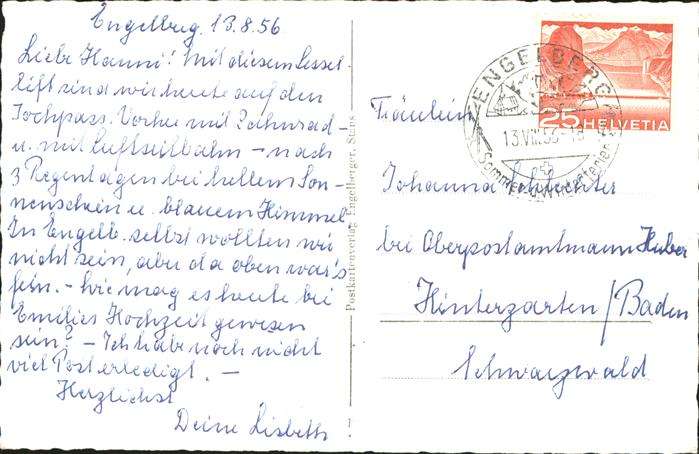 Engelbrg. 13.8.56
Liebe Hanni! Mit diesem Sessel-
lift sind wir heute auf den
Jochpass. Vorher mit Zahnrad-
u. mit Luftseilbahn - nach
3 Regentagen bei hellem Son-
nenschein u. blauem Himmel
In Engelb. selbst wollten wir
nicht sein, aber da oben war's
fein. - Wie mag es heute bei
Emilies Hochzeit gewesen
sein? - Ich habe noch nicht
viel Post erledigt. -
Herzlichst
Deine Lisbeth
Postkartenverlag Engelberger, Stans
ENGELBERG
13.VIII.56-18
Sommer- u. Winterferien
25 HELVETIA
Fräulein
Johanna
bei Oberpostamtmann Huber
Hinterzarten / Baden
Schwarzwald